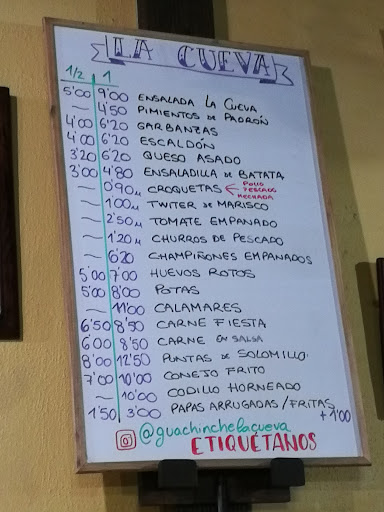 LA CUEVA
1/2 1
5'00 9'00 ENSALADA LA CUEVA
— 4'50 PIMIENTOS DE PADRÓN
4'00 6'20 GARBANZAS
4'00 6'20 ESCALDÓN
3'20 6'20 QUESO ASADO
3'00 4'80 ENSALADILLA DE BATATA
— 0'90u CROQUETAS ← POLLO PESCADO MECHADA
— 1'00u TWITER DE MARISCO
— 2'50u TOMATE EMPANADO
— 1'20u CHURROS DE PESCADO
— 6'20 CHAMPIÑONES EMPANADOS
5'00 7'00 HUEVOS ROTOS
5'00 8'00 POTAS
— 11'00 CALAMARES
6'50 8'50 CARNE FIESTA
6'00 8'50 CARNE EN SALSA
8'00 12'50 PUNTAS DE SOLOMILLO
7'00 10'00 CONEJO FRITO
— 10'00 CODILLO HORNEADO
1'50 3'00 PAPAS ARRUGADAS/FRITAS
+1'00
@guachinchelacueva
ETIQUÉTANOS